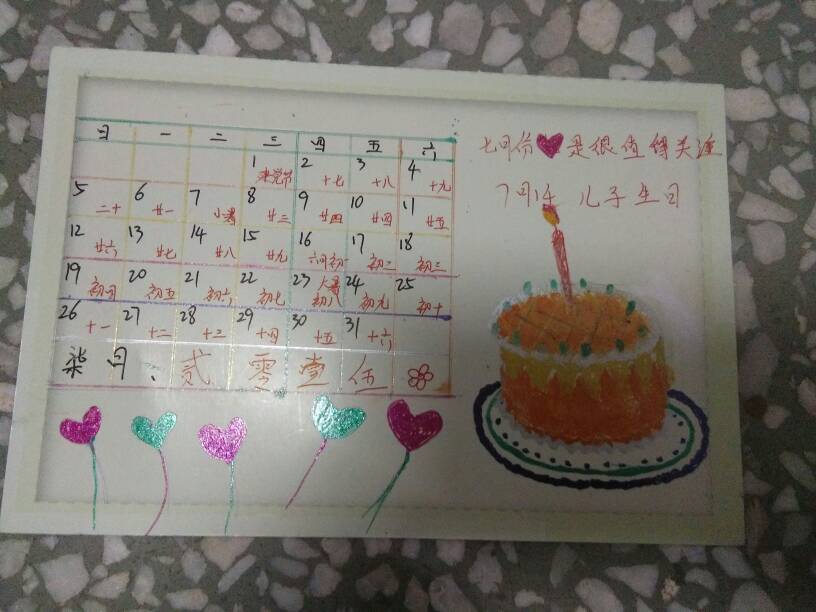 日 一 二 三 四 五 六
1 建党节 2 十七 3 十八 4 十九
5 二十 6 廿一 7 小暑 8 廿三 9 廿四 10 廿四 11 廿五
12 廿六 13 廿七 14 廿八 15 廿九 16 六月初一 17 初二 18 初三
19 初四 20 初五 21 初六 22 初七 23 大暑 初八 24 初九 25 初十
26 十一 27 十二 28 十三 29 十四 30 十五 31 十六
柒月、贰零壹伍
七月份 是很值得关注
7月14 儿子生日